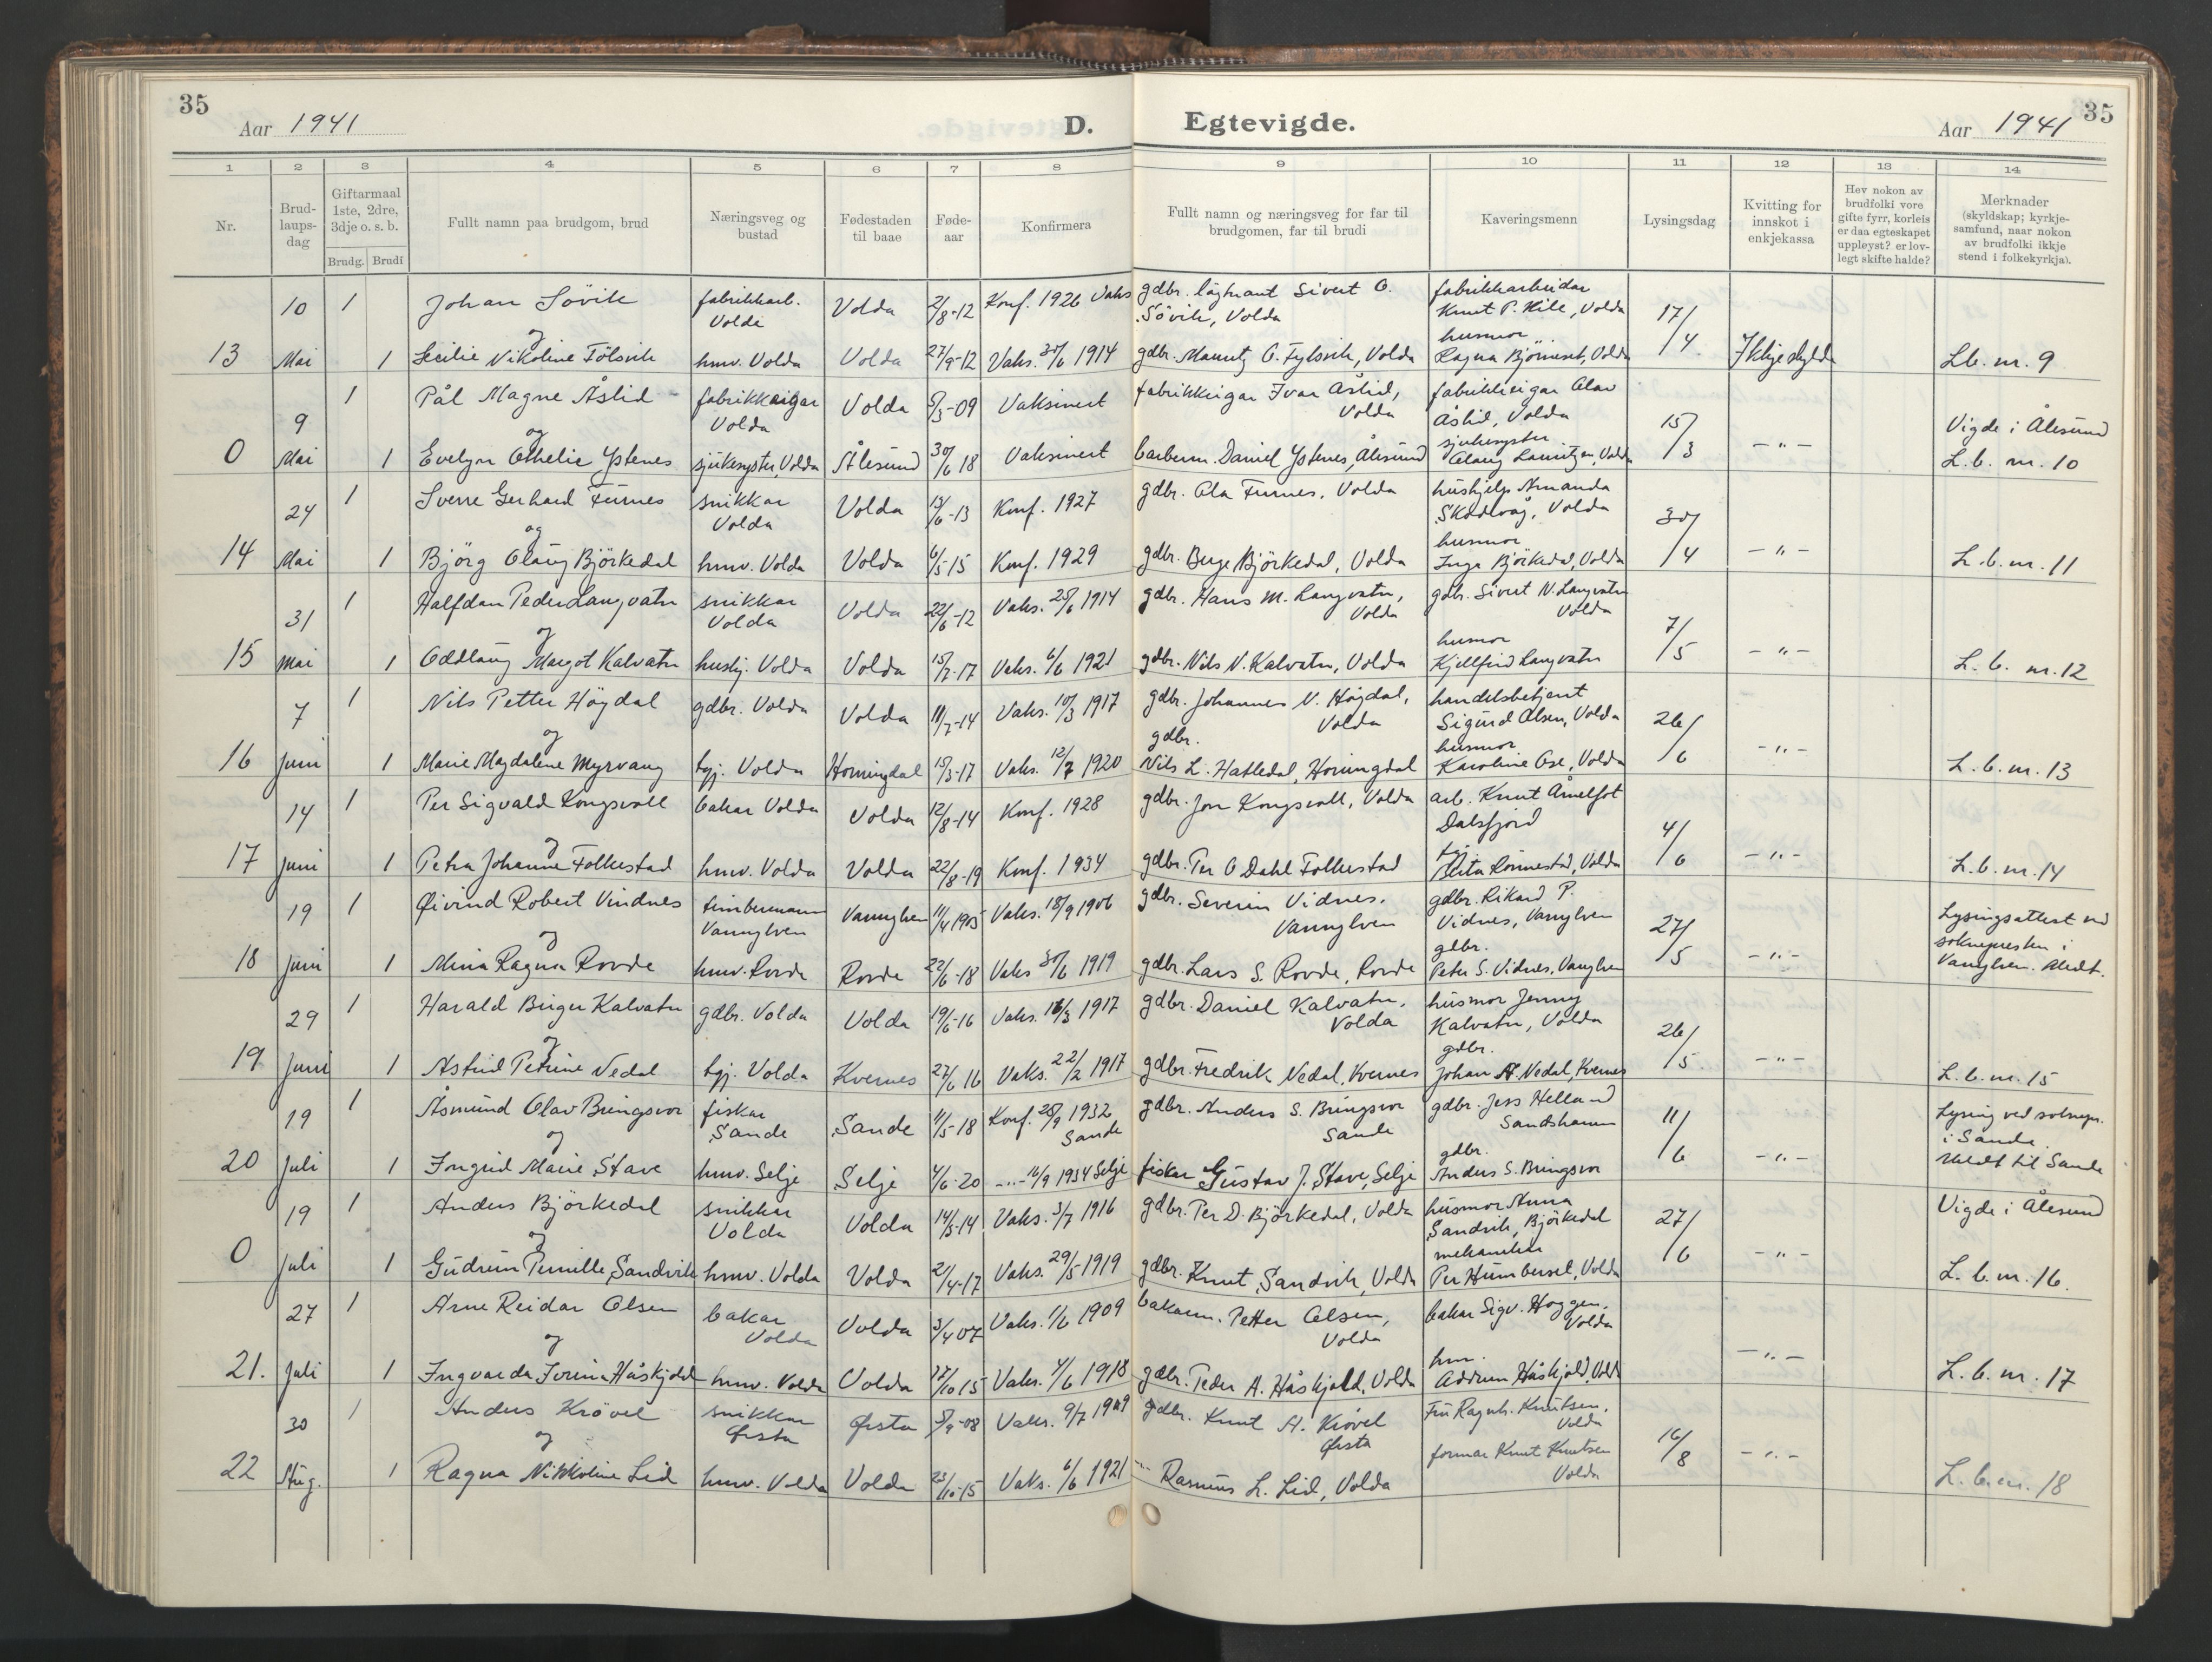 35
Aar 1941
D.
Egtevigde.
Aar 1941
35
1 2 3 4 5 6 7 8 9 10 11 12 13 14
Nr.
Brud-
laups-
dag
Giftarmaal
1ste, 2dre,
3dje o. s. b.
Brudg. Brudi
Fullt namn paa brudgom, brud
Næringsveg og
bustad
Fødestaden
til baae
Føde-
aar
Konfirmera
Fullt namn og næringsveg for far til
brudgomen, far til brudi
Kaveringsmenn
Lysingsdag
Kvitting for
innskot i
enkjekassa
Hev nokon av
brudfolki vore
gifte fyrr, korleis
er daa egteskapet
uppløyst? er lov-
legt skifte halde?
Merknader
(skyldskap; kyrkje-
samfund, naar nokon
av brudfolki ikkje
stend i folkekyrkja).
10 1 Johan Sövik fabrikkarb. Volda Volda 2/8-12 Konf. 1926 Vaks gdbr. Sivert O. Sövik, Volda fabrikkarbeidar Knut P. Hile, Volda 17/4
og
13 Mai 1 Cecilie Nikoline Fölsvik hmv. Volda Volda 27/9-12 Vaks. 30/6 1914 gdbr. Mauritz O. Fylsvik, Volda husmor Ragna Björneset, Volda Ikkje skylde Lb. nr. 9
9 1 Pål Magne Åslid fabrikkeigar Volda Volda 5/3-09 Vaksinert fabrikkeigar Ivar Åslid, Volda fabrikkeigar Olav Åslid, Volda 15/3 Vigde i Ålesund
og
0 Mai 1 Evelyn Othelie Ystenes sjukesyster, Volda Ålesund 30/6 18 Vaksinert barberm. Daniel Ystenes, Ålesund sjukesyster Olaug Lauritzen, Volda - " - L.b. nr. 10
24 1 Sverre Gerhard Furnes snikkar Volda Volda 13/6-13 Konf. 1927 gdbr. Ola Furnes, Volda hushjelp Amanda Skodvåg, Volda 30/4
og
14 Mai 1 Björg Olaug Björkedal hmv. Volda Volda 6/5-15 Konf. 1929 gdbr. Berge Björkedal, Volda husmor Inga Björkedal, Volda - " - L.b. nr. 11
31 1 Halfdan Peder Langvatn snikkar Volda Volda 22/6-12 Vaks. 25/6 1914 gdbr. Hans M. Langvatn, Volda gdbr. Sivert N. Langvatn Volda 7/5
og
15 Mai 1 Oddlaug Margot Kalvatn hushj. Volda Volda 15/7-17 Vaks. 6/6 1921 gdbr. Nils N. Kalvatn, Volda husmor Kjellfrid Langvatn - " - L.b. nr. 12
7 1 Nils Petter Högdal gdbr. Volda Volda 11/7-14 Vaks. 10/3 1917 gdbr. Johannes N. Högdal, Volda handelsbetjent Sigurd Olsen, Volda 26/6
og
16 Juni 1 Marie Magdalene Myrvang tgj. Volda Horningdal 15/3-17 Vaks. 12/7 1920 gdbr. Nils L. Hatledal, Horningdal husmor Karoline Ose, Volda - " - L.b. nr. 13
14 1 Per Sigvald Kongsvoll bakar Volda Volda 12/8-14 Konf. 1928 gdbr. Jon Kongsvoll, Volda arb. Knut Åmelfot Dalsfjord 4/6
og
17 Juni 1 Petra Johanne Folkestad hmv. Volda Volda 22/8-19 Konf. 1934 gdbr. Per O Dahl Folkestad tgj. Berta Rönnestad, Volda - " - L.b. nr. 14
19 1 Øivind Robert Vindnes timbermann Vannylven Vannylven 11/4 1905 Vaks. 18/9 1906 gdbr. Severin Vidnes, Vannylven gdbr. Rikard P. Vidnes, Vannylven 27/5 Lysingsattest ved
og
18 Juni 1 Mina Ragna Rovde hmv. Rovde Rovde 22/6-18 Vaks 30/6 1919 gdbr. Lars S. Rovde, Rovde gdbr. Peter S. Vidnes, Vanylven - " - soknepresten i Vanylven. Meldt.
29 1 Harald Birger Kalvatn gdbr. Volda Volda 19/6-16 Vaks. 16/3 1917 gdbr. Daniel Kalvatn, Volda husmor Jenny Kalvatn, Volda 26/5
og
19 Juni 1 Astrid Petrine Nedal tgj. Volda Kvernes 27/6 16 Vaks. 22/2 1917 gdbr. Fredrik Nedal, Kvernes gdbr. Johan A Nedal, Kvernes - " - L.b. nr. 15
19 1 Åsmund Olav Bringsvor fiskar Sande Sande 11/5-18 Konf. 25/9 1932 Sande gdbr. Anders S. Bringsvor Sande gdbr. Jess Helland Sandshamn 11/6 Lysing ved soknepr. i Sande.
og
20 Juli 1 Ingrid Marie Stave hmv. Selje Selje 4/6-20 - " - 16/9 1934 Selje fiskar Gustav J. Stave, Selje gdbr. Anders S. Bringsvor - " - Meldt til Sande
19 1 Anders Björkedal snikkar Volda Volda 14/3-14 Vaks. 3/7 1916 gdbr. Per D. Björkedal, Volda husmor Anna Sandvik, Björkedal 27/6 Vigde i Ålesund
og
0 Juli 1 Gudrun Pernille Sandvik hmv. Volda Volda 21/4-17 Vaks. 29/5 1919 gdbr. Knut Sandvik, Volda mekanikar Per Humberset, Volda - " - L.b. nr. 16.
27 1 Arne Reidar Olsen bakar Volda Volda 3/4 07 Vaks. 1/6 1909 bakarm. Petter Olsen, Volda bakar Sigv. Hoggen, Volda
og
21. Juli 1 Ingvarda Jorina Håskjold hmv. Volda Volda 17/10 15 Vaks. 4/6 1918 gdbr. Peder A. Håskjold, Volda hm. Håskjold, Volda - " - L.b. nr. 17
30 1 Anders Krövel snikkar Ørsta Ørsta 5/9-08 Vaks. 9/7 1909 gdbr. Knut A. Krövel Ørsta Fru Ragnh. Knutsen, Volda 16/8
og
22 Aug. 1 Ragna Nikoline Lid hmv. Volda Volda 23/10-15 Vaks. 6/6 1921 - " - Rasmus L. Lid, Volda formar Knut Knutsen Volda - " - L.b. nr. 18